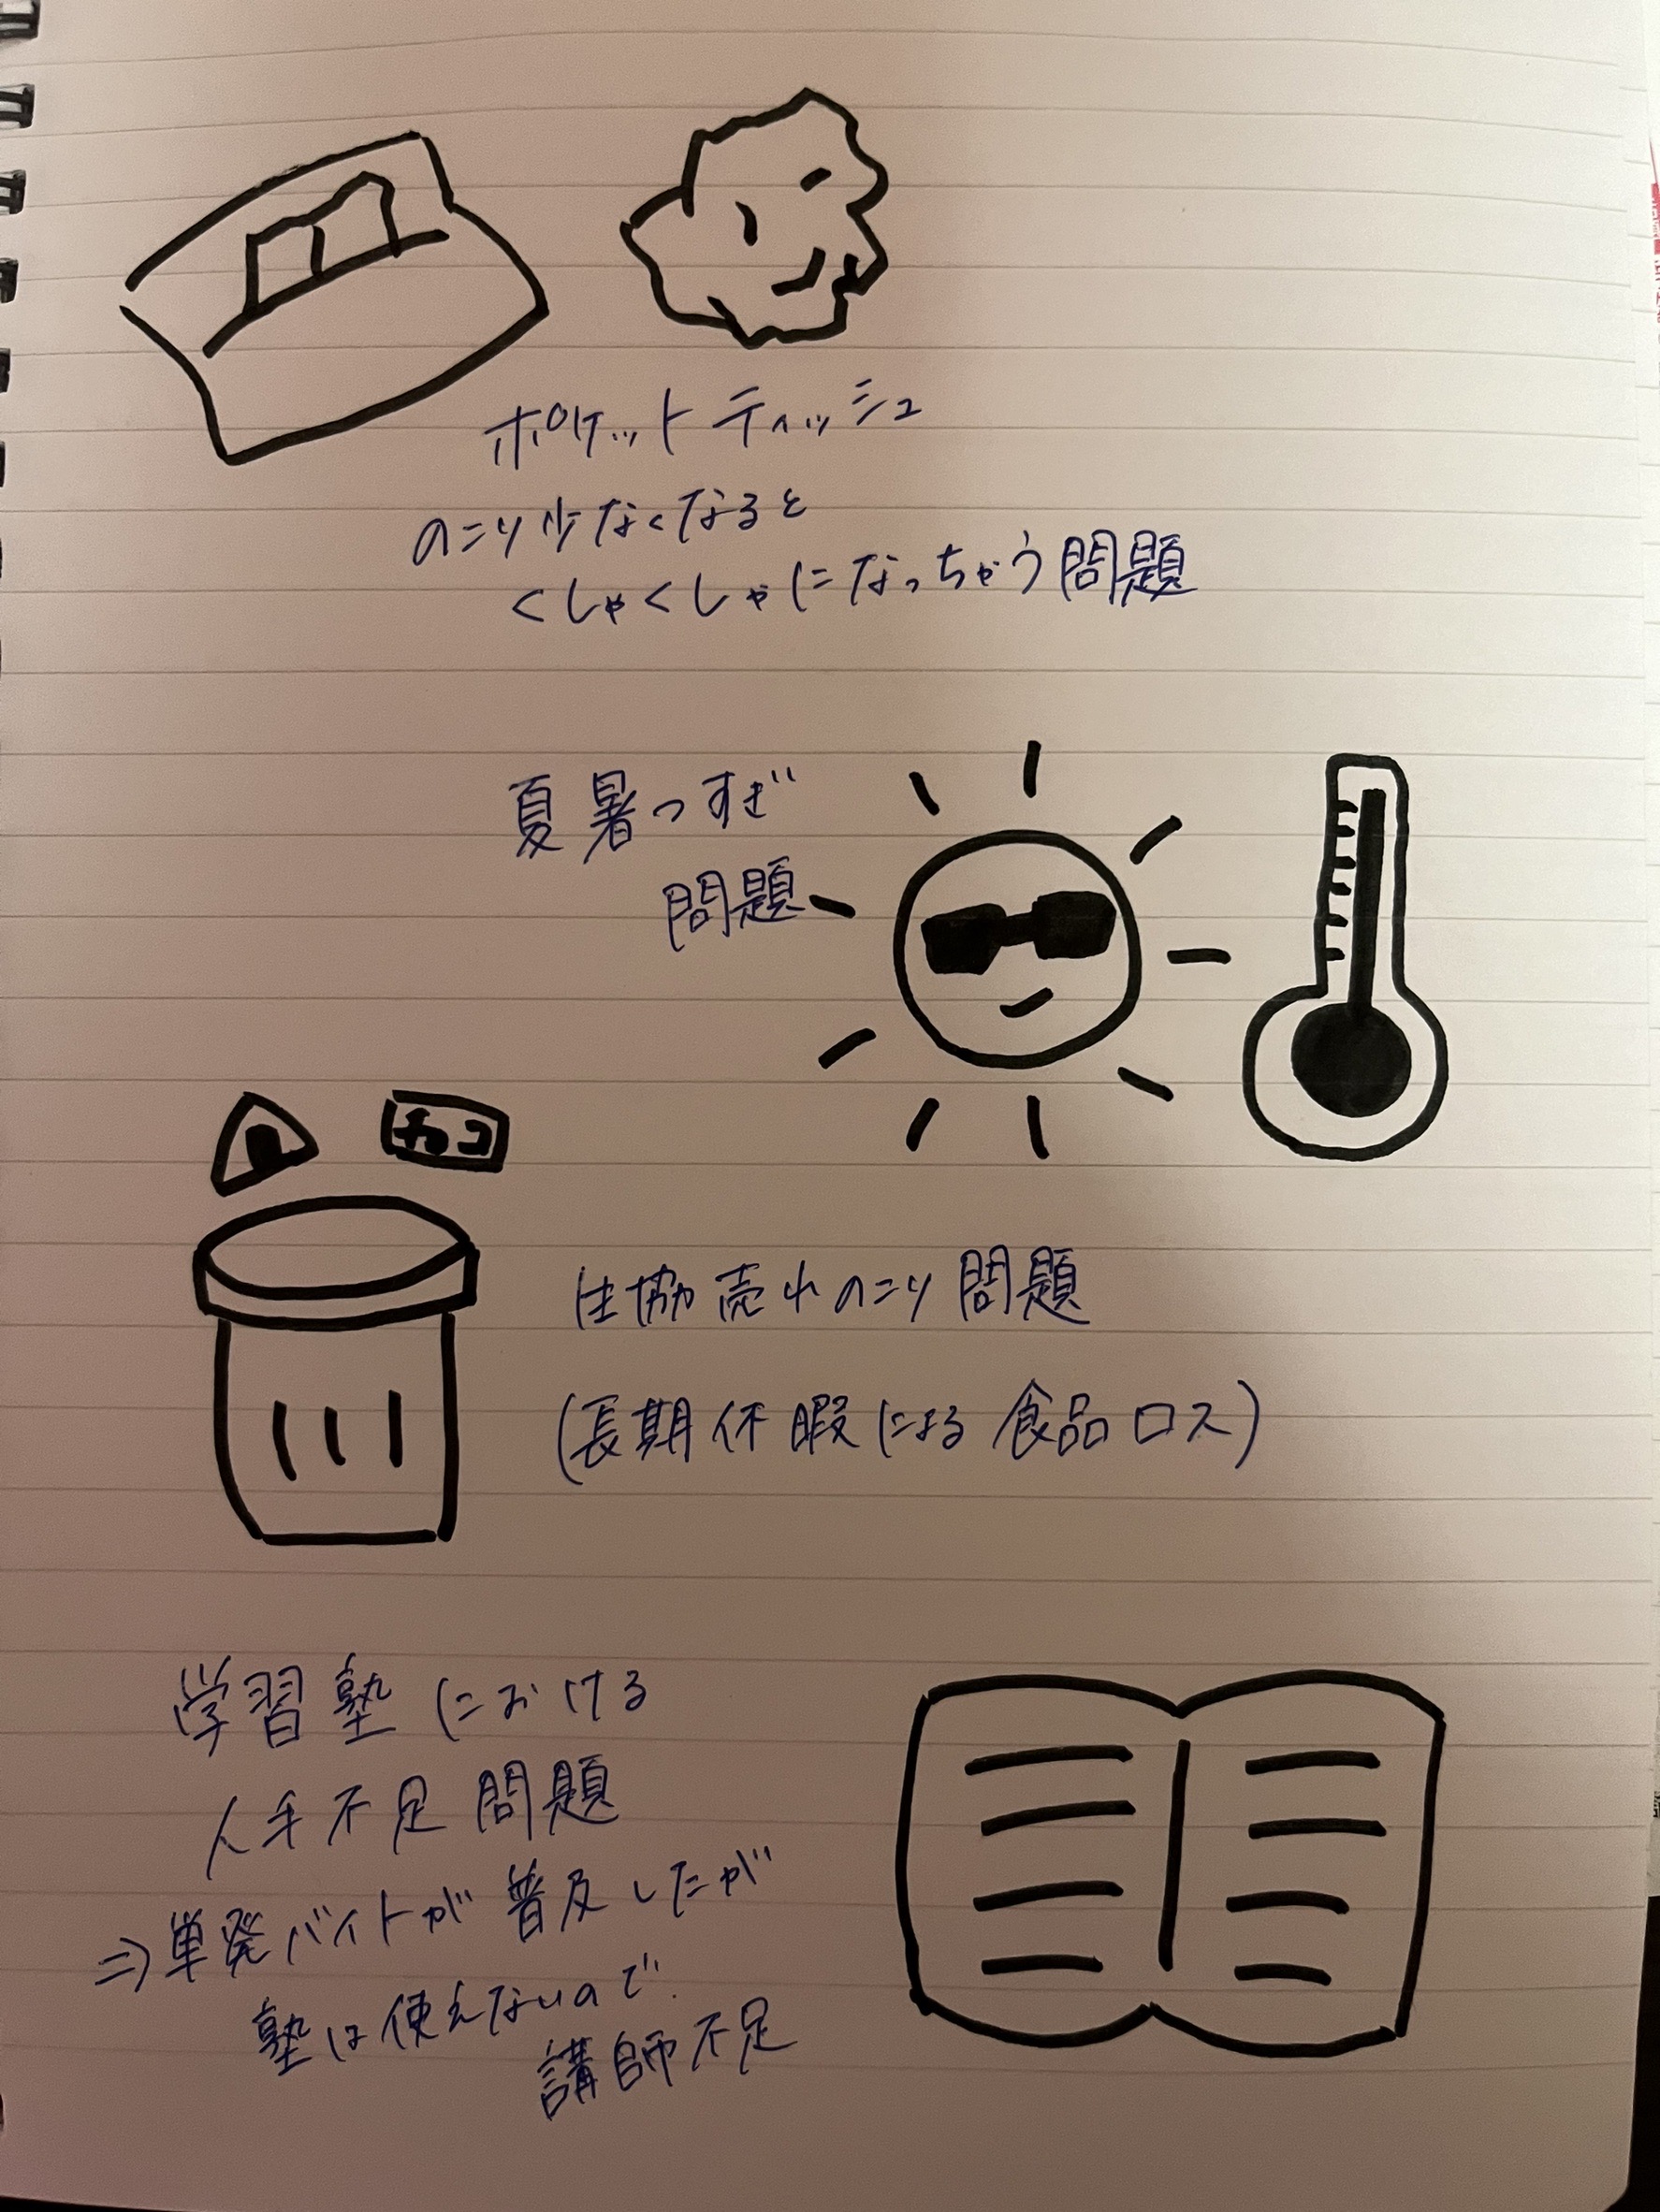 ポケットティッシュ
のこり少なくなると
くしゃくしゃになっちゃう問題
夏暑っすぎ
問題
チョコ
生協売れのこり問題
(長期休暇による食品ロス)
学習塾における
人手不足問題
⇒単発バイトが普及したが
塾は使えないので
講師不足